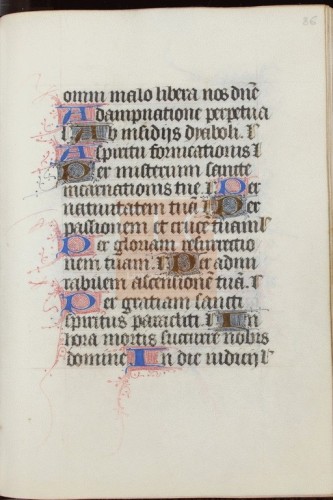 86
omni malo libera nos dñe
A dampnatione perpetua
l. Ab insidijs dyaboli. l
A spiritu fornicationis l
Per misterium sancte
incarnationis tue. l. Per
natiuitatem tuã l Per
passionem et crucē tuam l
Per gloriam resurrectio
nem tuam. l. Per admi
rabilem ascensionē tuã. l
Per gratiam sancti
spiritus paracliti. l In
hora mortis succurre nobis
domine l In die iudicij l